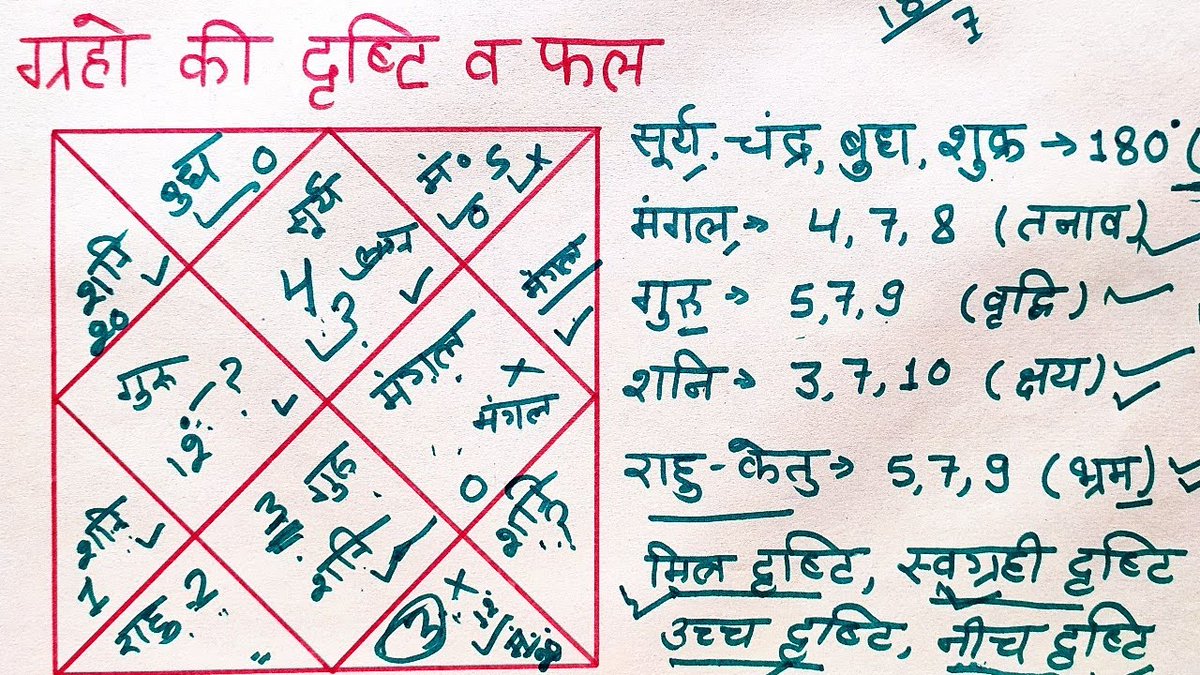 ग्रहो की दृष्टि व फल
सूर्य, चंद्र, बुध, शुक्र → 180°
मंगल → 4, 7, 8 (तनाव)
गुरु → 5, 7, 9 (वृद्धि)
शनि → 3, 7, 10 (क्षय)
राहु - केतु → 5, 7, 9 (भ्रम)
मित्र दृष्टि, स्वग्रही दृष्टि
उच्च दृष्टि, नीच दृष्टि
बुध 0
सूर्य
4
3
मं० 5 x
0
शनि
मंगल
गुरु
?
मंगल
x
मंगल
0
शनि
1
राहु 2
गुरु
3
शनि
शनि
3 x
7